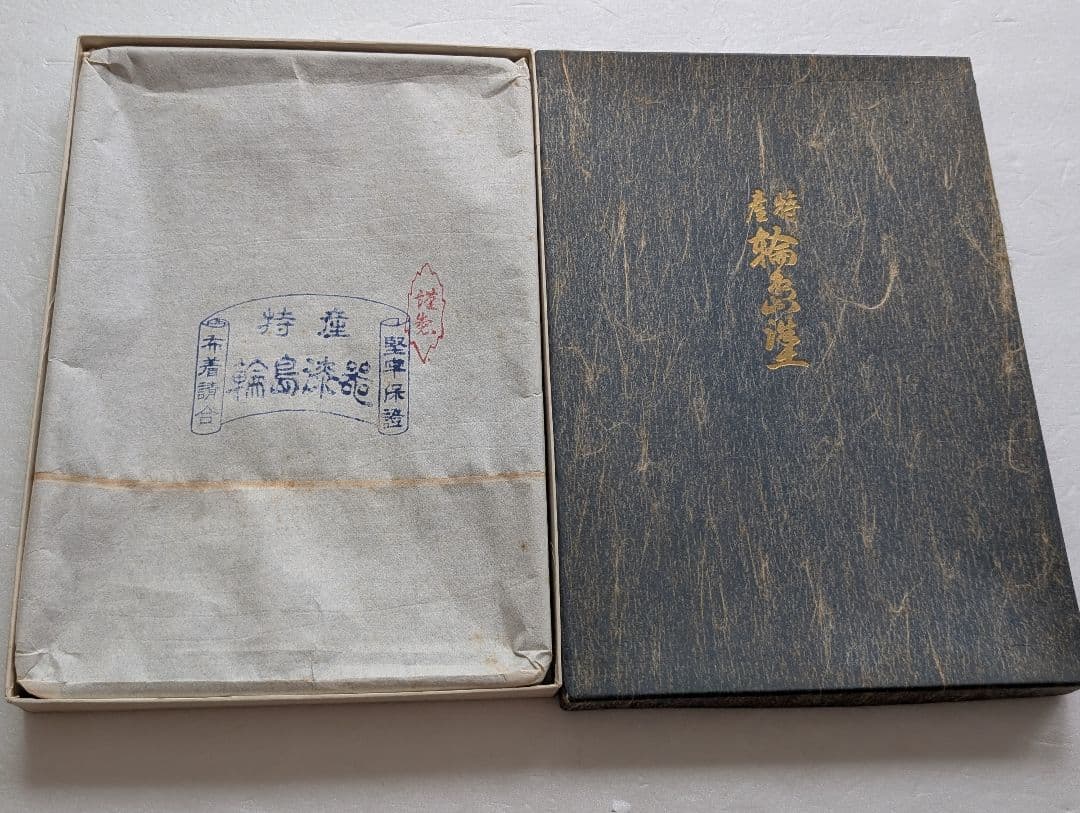 特産
輪島漆器
堅牢保證
布着請合
特産
輪島塗